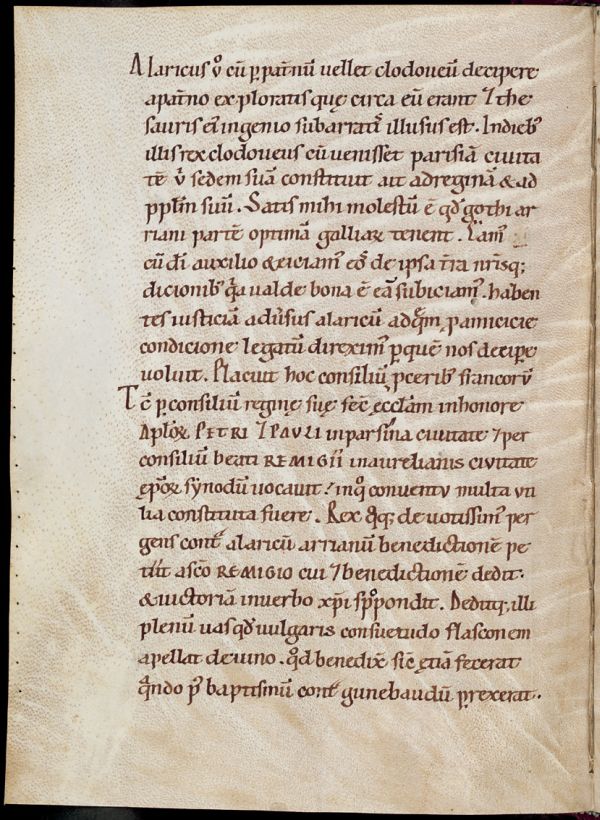 Alaricus ů cū p patnū uellet clodoueū decipere
apatno exploratis quę circa eū erant ⁊ the
sauris et ingenio subarratꝰ illusus est. Indiebꝰ
illis rex clodoueus cū uenisset parisiā ciuita
tē ů sedem suā constituit ait ad reginā & ad
pplm̄ suū. Satis mihi molestū ē qd̄ gothi ar
riani partē optimā galliaꝝ tenent. Eamꝰ
cū dī auxilio & eiciamꝰ eos de ipsa tr̄a nr̄isq;
dicionibꝰ qͣa ualde bona ē eā subiciamꝰ. haben
tes iusticiā aduersus alaricū ad quem p amicicie
condicione legatū direximꝰ p quē nos decipe
uoluit. Placuit hoc consiliū pceribꝰ francorū
Tc̄ p consiliū reginę suę fec̄ ęcclām in honore
Apl̄oꝝ PETRI ⁊ PAULI in parisina ciuitate ⁊ per
consiliū beati REMIGII in aurelianis ciuitate
ep̄oꝝ synodū uocauit. in qͦ conuentu multa uti
lia constituta fuere. Rex qͦq; deuotissimꝰ per
gens cont alaricū arrianū benedictionē pe
tiit a sc̄o REMIGIO cui ⁊ benedictionē dedit.
& uictoriā in uerbo xp̄i spͦpondit. Deditq; illi
plenū uas qd̄ uulgaris consuetudo flasconem
apellat de uino. qͦd benedix̄ sic̄ etiā fecerat
qͣndo pͥꝰ baptismū cont gunebaudū prexerat.